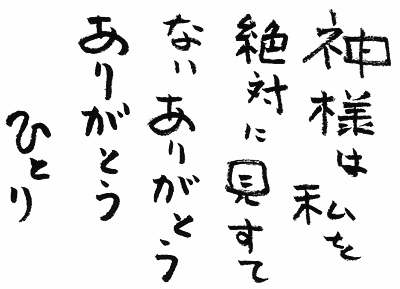 神様は私を
絶対に見すて
ないありがとう
ありがとう
ひとり